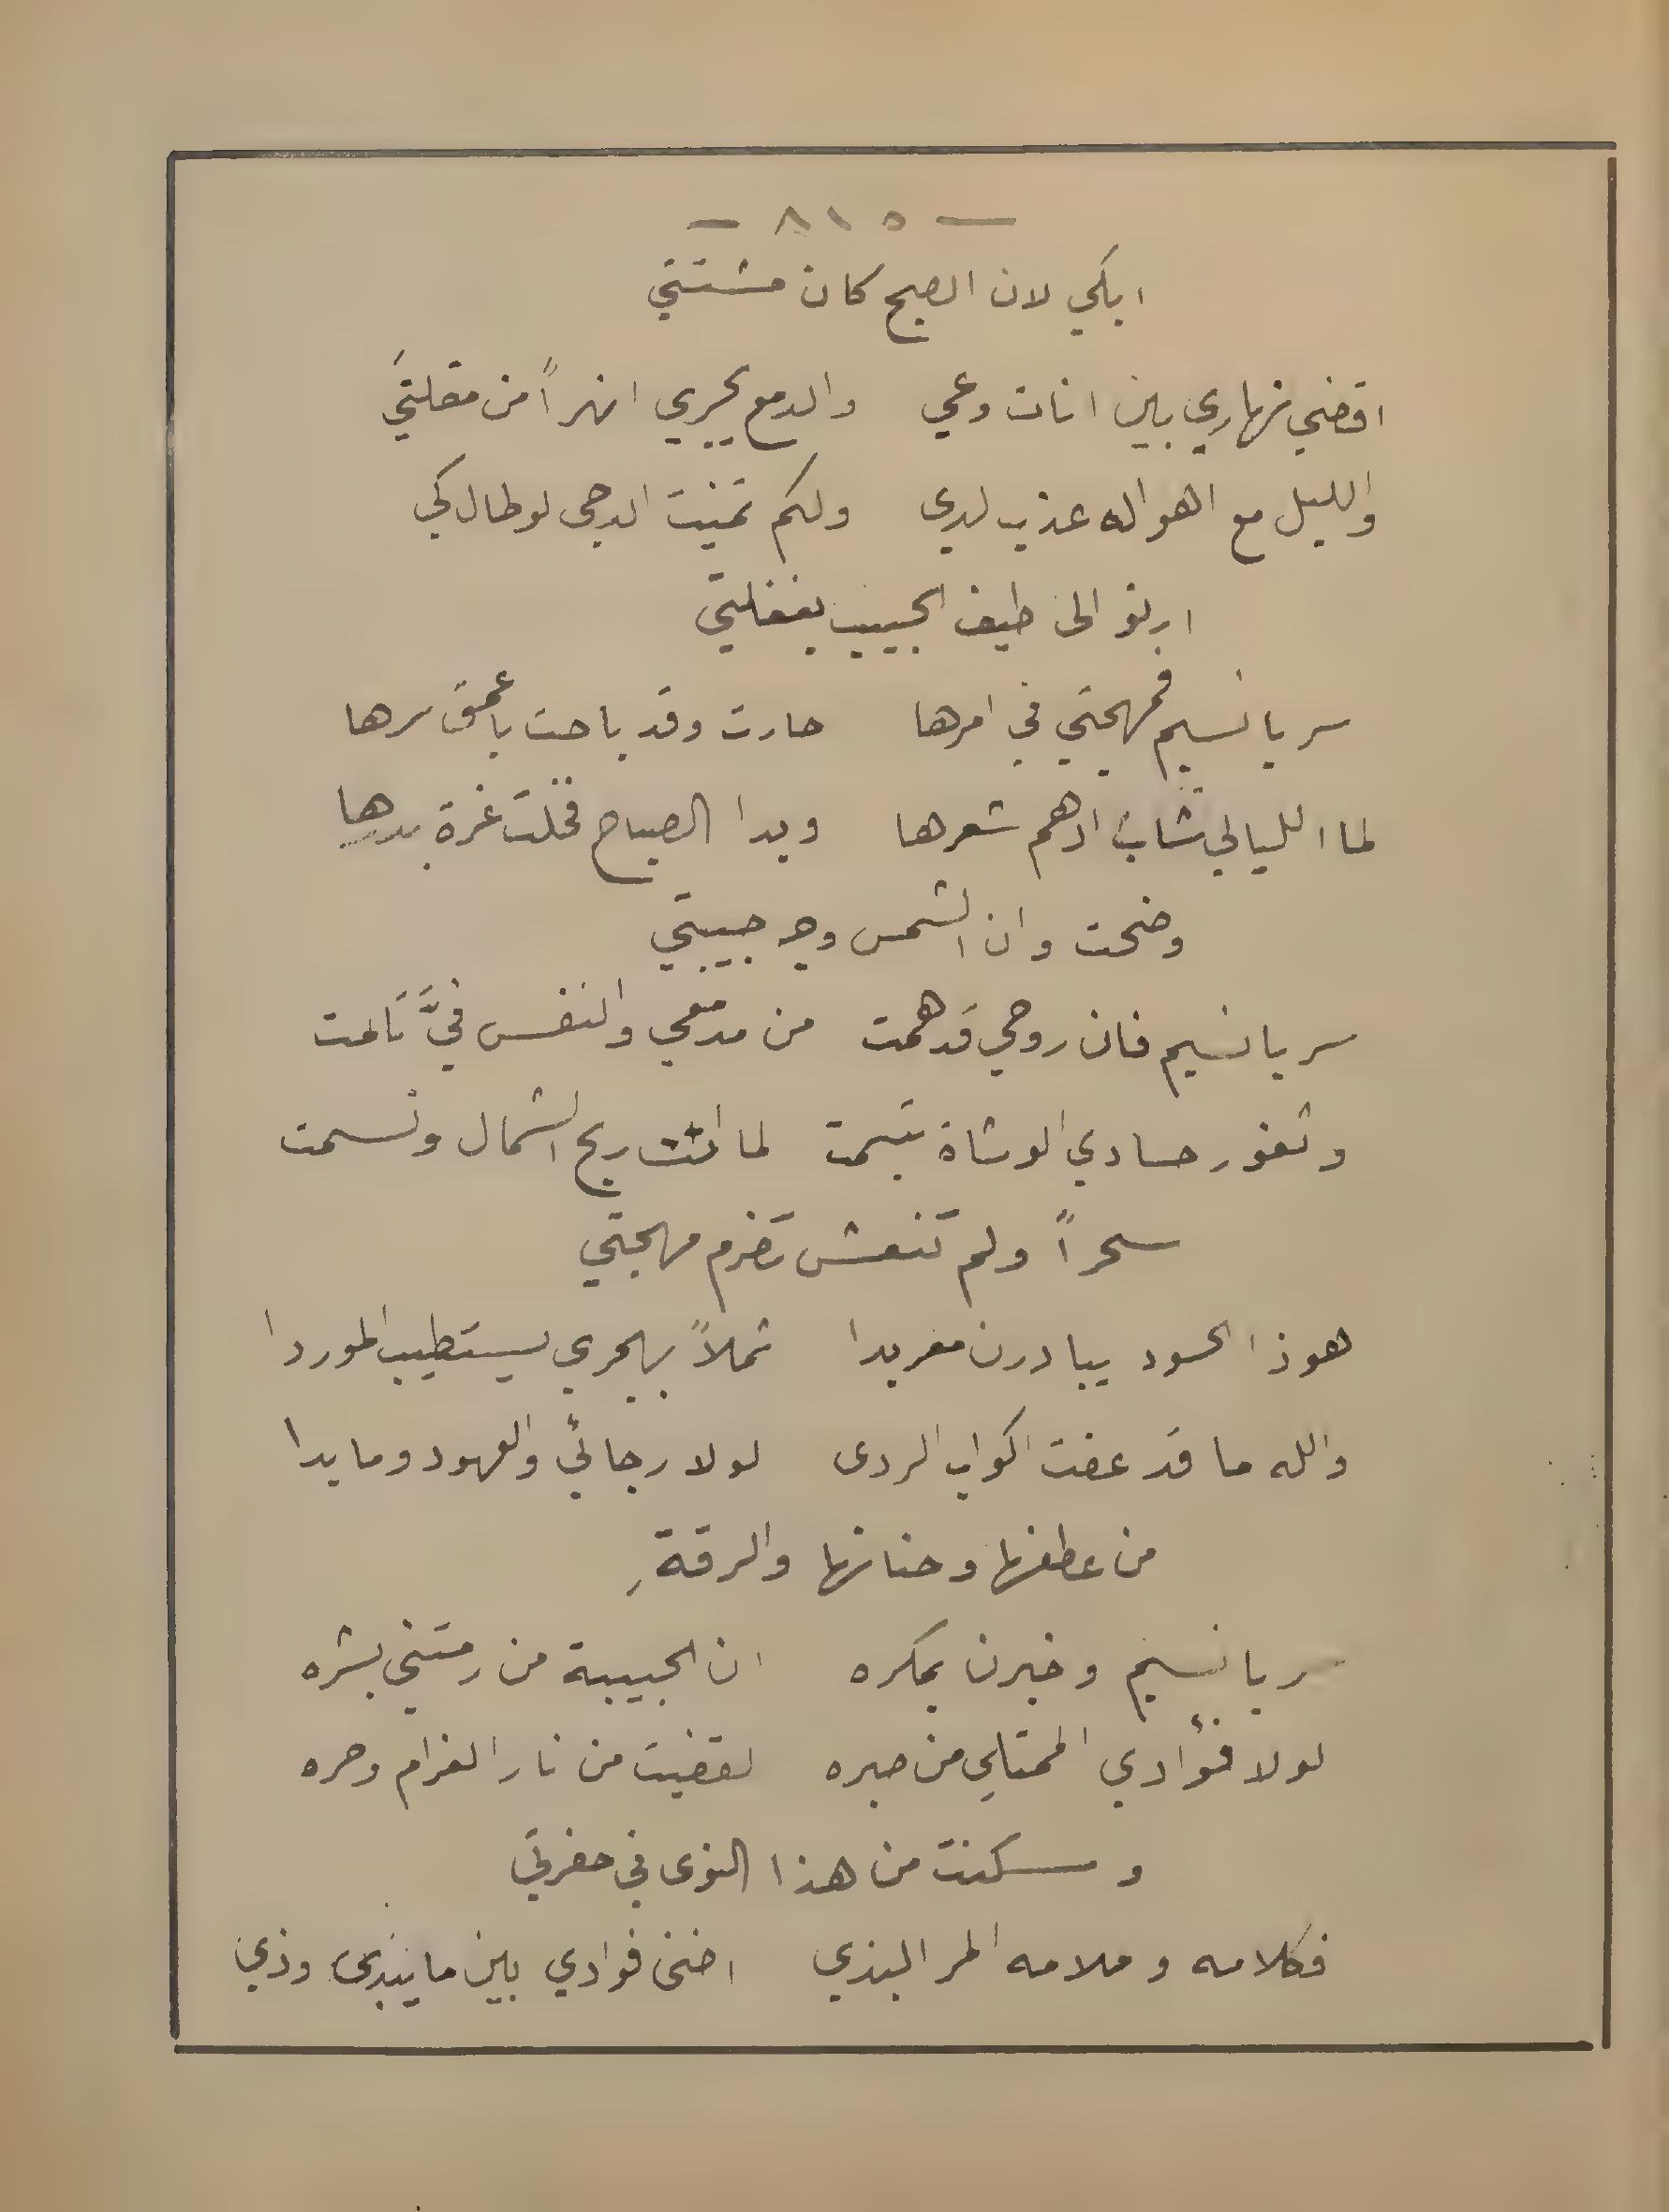 — ٨١٥ —
ابكي لان الصبح كان مشتتي
اقضي نهاري بين انات وعي والدمع يجري انهراً من مقلتيَ
والليل مع اهواله عذب لدى ولكم تمنيت الدجى لو طال كي
ارنو الى طيف الحبيب بغفلتي
سر يا نسيم فمهجتي في امرها حارت وقد باحت باعمق سرها
لما الليالي شاب ادهم شعرها وبدا الصباح فخلت غرة بدرها
وضحت وان الشمس وجه حبيبتي
سر يا نسيم فان روحي قد همت من مدمعي والنفس فيَّ تألمت
وثغور حسادي الوشاة تبسمت لما اتت ريح الشمال ونسمت
سحراً ولم تنعش تضرم مهجتي
هوذا الحسود يبادرن مغربدا ثملاً بهجري يستطيب الموردا
والله ما قد عفت اكواب الردى لولا رجائي والعهود وما بدا
من عطفها وحنانها والرقةِ
سر يا نسيم وخبرن بمكره ان الحبيبة من رمتني بشره
لولا فؤادي الممتلي من صبره لقضيت من نار الغرام وحره
وسكنت من هذا النوى في حفرتي
فكلامه وملامه المر البذي اضنى فوادي بين ما وذي